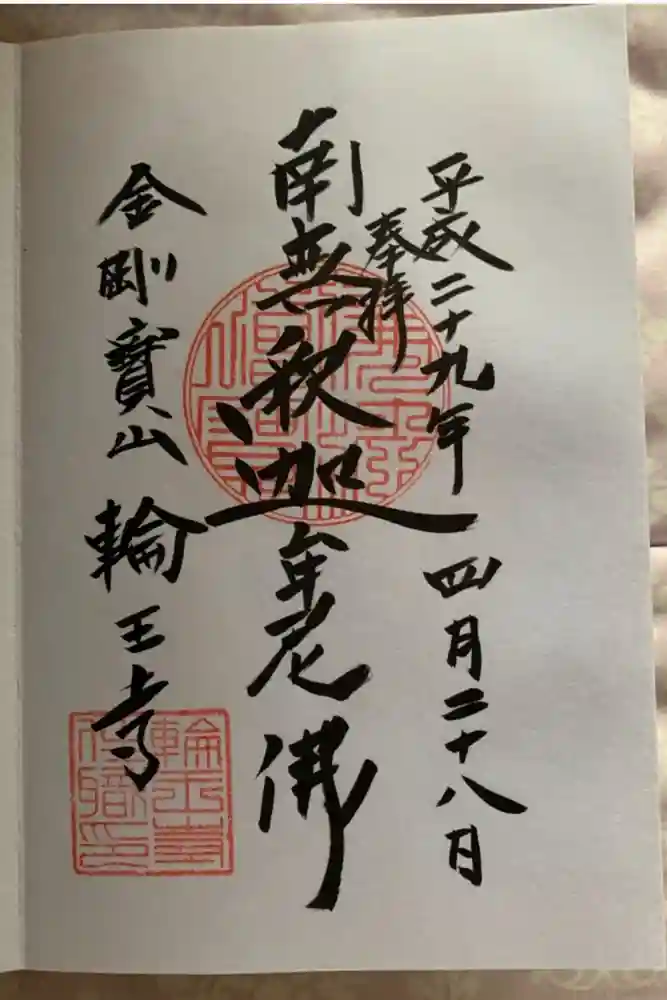 平成二十九年 四月二十八日
奉拝
南無釈迦牟尼佛
金剛寶山 輪王寺
輪王寺
住職印